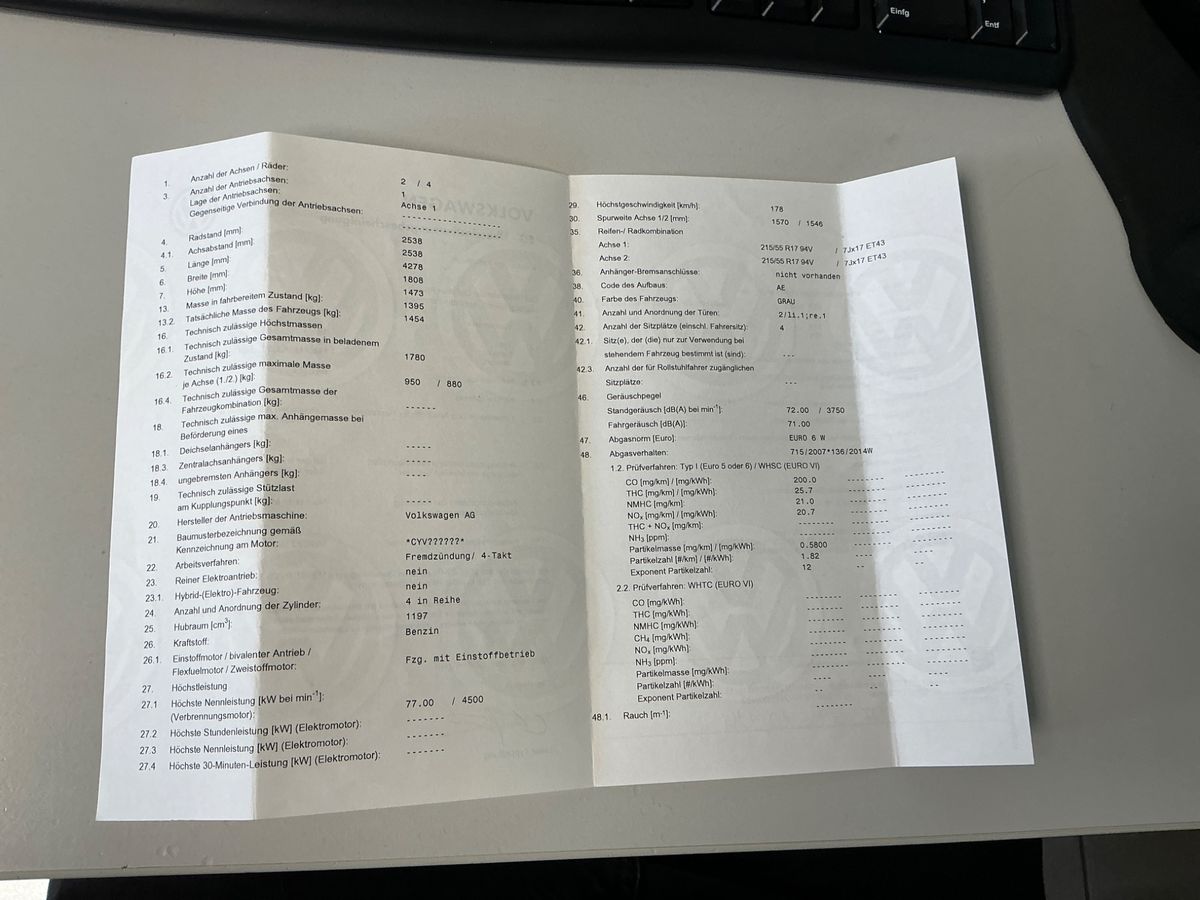 Einfg
Entf
1. Anzahl der Achsen / Räder: 2 / 4
3. Anzahl der Antriebsachsen: 1
Lage der Antriebsachsen: Achse 1
Gegenseitige Verbindung der Antriebsachsen: --------------------
4. Radstand [mm]: 2538
4.1. Achsabstand [mm]: 2538
5. Länge [mm]: 4278
6. Breite [mm]: 1808
7. Höhe [mm]: 1473
13. Masse in fahrbereitem Zustand [kg]: 1395
13.2. Tatsächliche Masse des Fahrzeugs [kg]: 1454
16. Technisch zulässige Höchstmassen
16.1. Technisch zulässige Gesamtmasse in beladenem
Zustand [kg]: 1780
16.2. Technisch zulässige maximale Masse
je Achse (1./2.) [kg]: 950 / 880
16.4. Technisch zulässige Gesamtmasse der
Fahrzeugkombination [kg]: ------
18. Technisch zulässige max. Anhängemasse bei
Beförderung eines
18.1. Deichselanhängers [kg]: -----
18.3. Zentralachsanhängers [kg]: -----
18.4. ungebremsten Anhängers [kg]: ----
19. Technisch zulässige Stützlast
am Kupplungspunkt [kg]: -----
20. Hersteller der Antriebsmaschine: Volkswagen AG
21. Baumusterbezeichnung gemäß
Kennzeichnung am Motor: *CYV??????*
22. Arbeitsverfahren: Fremdzündung/ 4-Takt
23. Reiner Elektroantrieb: nein
23.1. Hybrid-(Elektro)-Fahrzeug: nein
24. Anzahl und Anordnung der Zylinder: 4 in Reihe
25. Hubraum [cm³]: 1197
26. Kraftstoff: Benzin
26.1. Einstoffmotor / bivalenter Antrieb /
Flexfuelmotor / Zweistoffmotor: Fzg. mit Einstoffbetrieb
27. Höchstleistung
27.1 Höchste Nennleistung [kW bei min⁻¹]: 77.00 / 4500
(Verbrennungsmotor):
27.2 Höchste Stundenleistung [kW] (Elektromotor): -------
27.3 Höchste Nennleistung [kW] (Elektromotor): -------
27.4 Höchste 30-Minuten-Leistung [kW] (Elektromotor): -------
29. Höchstgeschwindigkeit [km/h]: 178
30. Spurweite Achse 1/2 [mm]: 1570 / 1546
35. Reifen-/ Radkombination
Achse 1: 215/55 R17 94V / 7Jx17 ET43
Achse 2: 215/55 R17 94V / 7Jx17 ET43
36. Anhänger-Bremsanschlüsse: nicht vorhanden
38. Code des Aufbaus: AE
40. Farbe des Fahrzeugs: GRAU
41. Anzahl und Anordnung der Türen: 2/li.1;re.1
42. Anzahl der Sitzplätze (einschl. Fahrersitz): 4
42.1. Sitz(e), der (die) nur zur Verwendung bei
stehendem Fahrzeug bestimmt ist (sind): ---
42.3. Anzahl der für Rollstuhlfahrer zugänglichen
Sitzplätze: ---
46. Geräuschpegel
Standgeräusch [dB(A) bei min⁻¹]: 72.00 / 3750
Fahrgeräusch [dB(A)]: 71.00
47. Abgasnorm [Euro]: EURO 6 W
48. Abgasverhalten: 715/2007*136/2014W
1.2. Prüfverfahren: Typ I (Euro 5 oder 6) / WHSC (EURO VI)
CO [mg/km] / [mg/kWh]: 200.0 -------- --------
THC [mg/km] / [mg/kWh]: 25.7 -------- --------
NMHC [mg/km]: 21.0 -------- --------
NOₓ [mg/km] / [mg/kWh]: 20.7 -------- --------
THC + NOₓ [mg/km]: -------- -------- --------
NH₃ [ppm]: -------- -------- --------
Partikelmasse [mg/km] / [mg/kWh]: 0.5800 -------- --------
Partikelzahl [#/km] / [#/kWh]: 1.82 ---- ----
Exponent Partikelzahl: 12 -- --
2.2. Prüfverfahren: WHTC (EURO VI)
CO [mg/kWh]: -------- -------- --------
THC [mg/kWh]: -------- -------- --------
NMHC [mg/kWh]: -------- -------- --------
CH₄ [mg/kWh]: -------- -------- --------
NOₓ [mg/kWh]: -------- -------- --------
NH₃ [ppm]: -------- -------- --------
Partikelmasse [mg/kWh]: -------- -------- --------
Partikelzahl [#/kWh]: ---- ---- ----
Exponent Partikelzahl: -- -- --
48.1. Rauch [m-¹]: --------